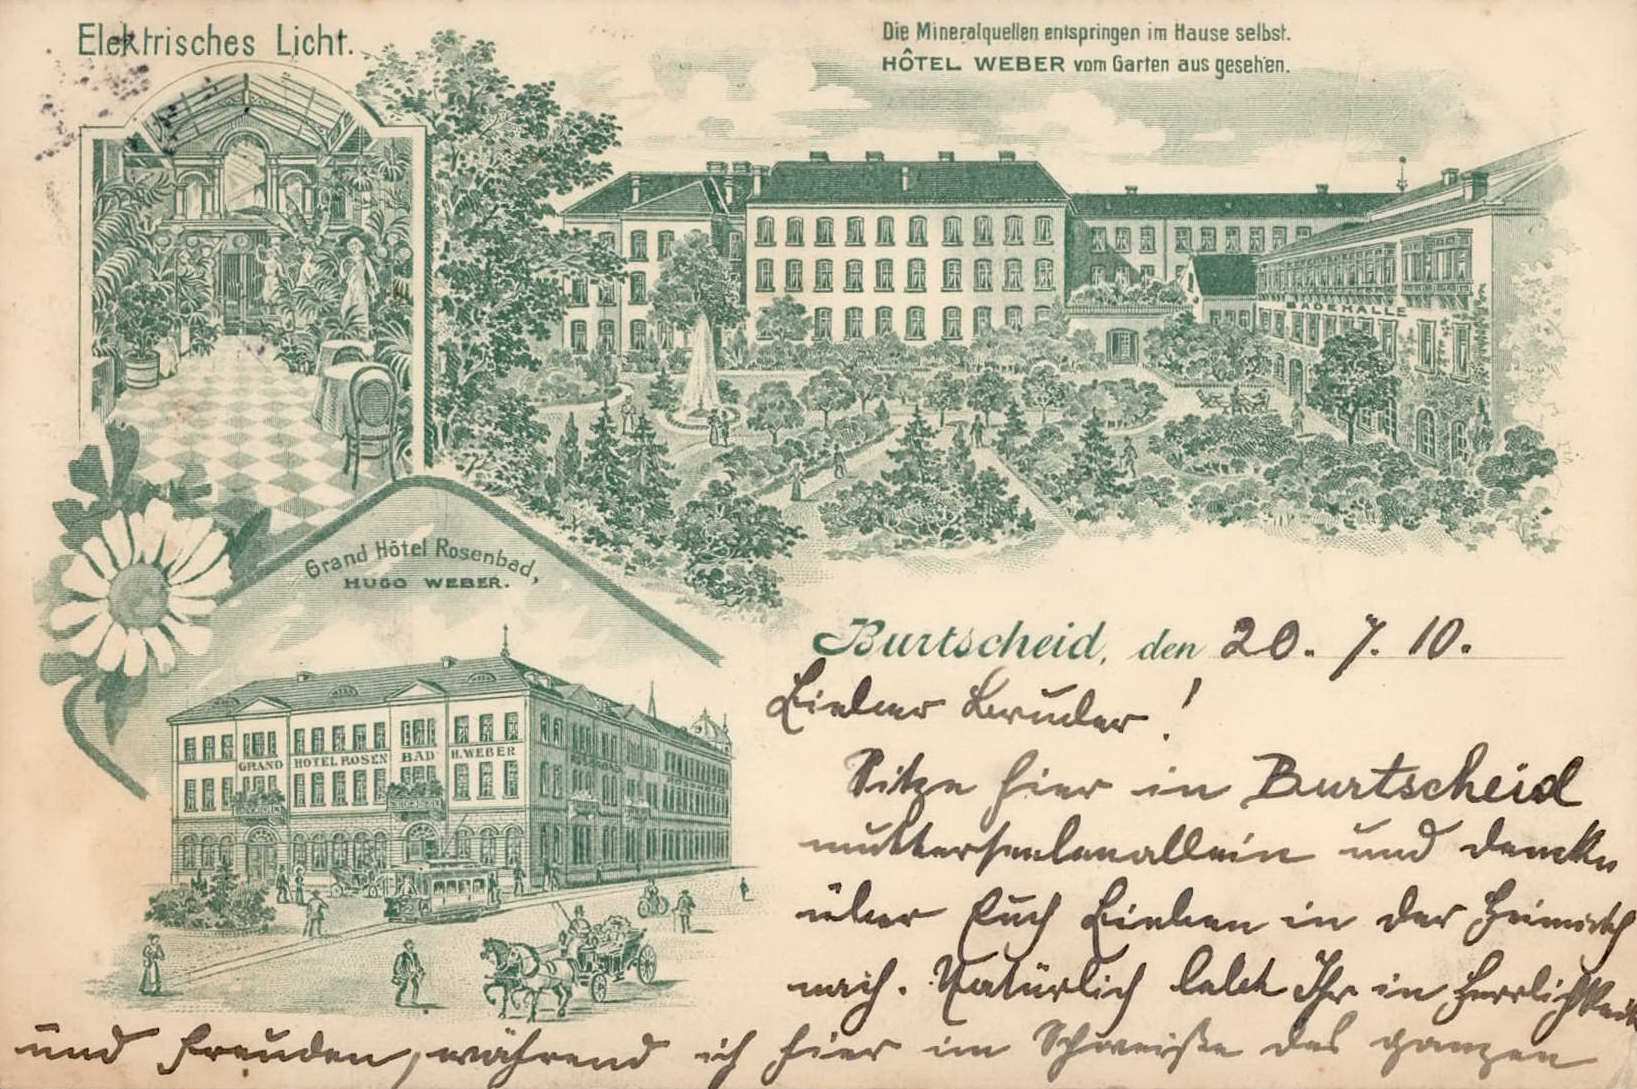 Elektrisches Licht.
Die Mineralquellen entspringen im Hause selbst.
HÔTEL WEBER vom Garten aus gesehen.
BADEHALLE
Grand Hôtel Rosenbad,
HUGO WEBER.
GRAND HOTEL ROSEN BAD H. WEBER
Burtscheid, den 20. 7. 10.
Lieber Bruder!
Sitze hier in Burtscheid
mutterseelenallein und dencke
über Euch Lieben in der Heimath
nach. Natürlich lebt Ihr in Herrlichkeit
und Freuden, während ich hier im Schweiße des ganzen